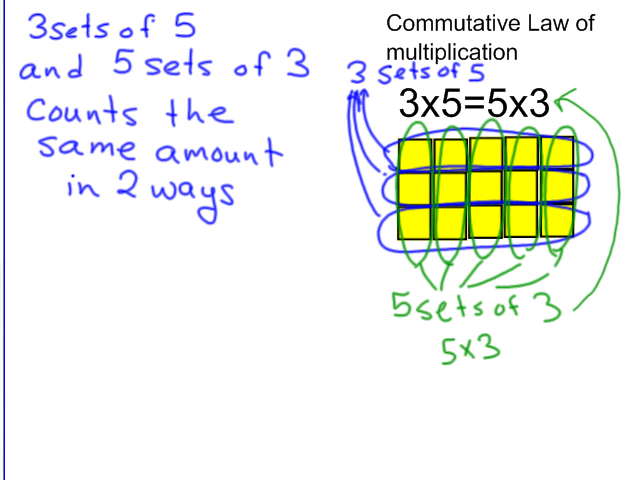 3 sets of 5
and 5 sets of 3
Counts the
same amount
in 2 ways
Commutative Law of
multiplication
3 sets of 5
3x5=5x3
5 sets of 3
5x3